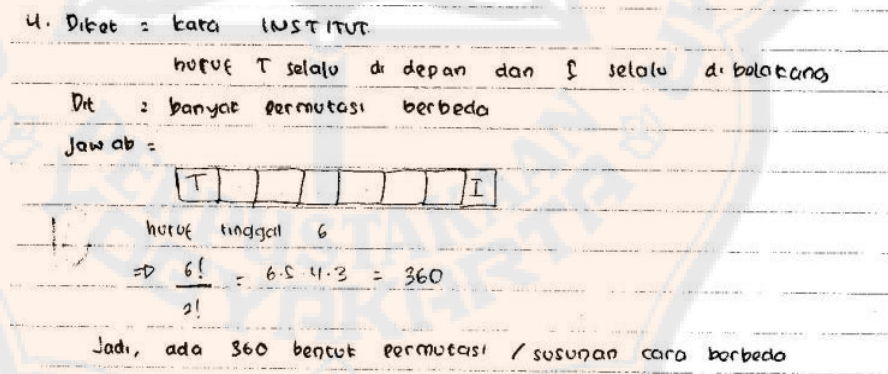 4. Diket : kata INSTITUT.
huruf T selalu di depan dan I selalu di bolakang
Dit : banyak permutasi berbeda
Jawab =
T I
huruf tinggal 6
⇒ 6!/2! = 6.5.4.3 = 360
Jadi, ada 360 bentuk permutasi / susunan cara berbeda